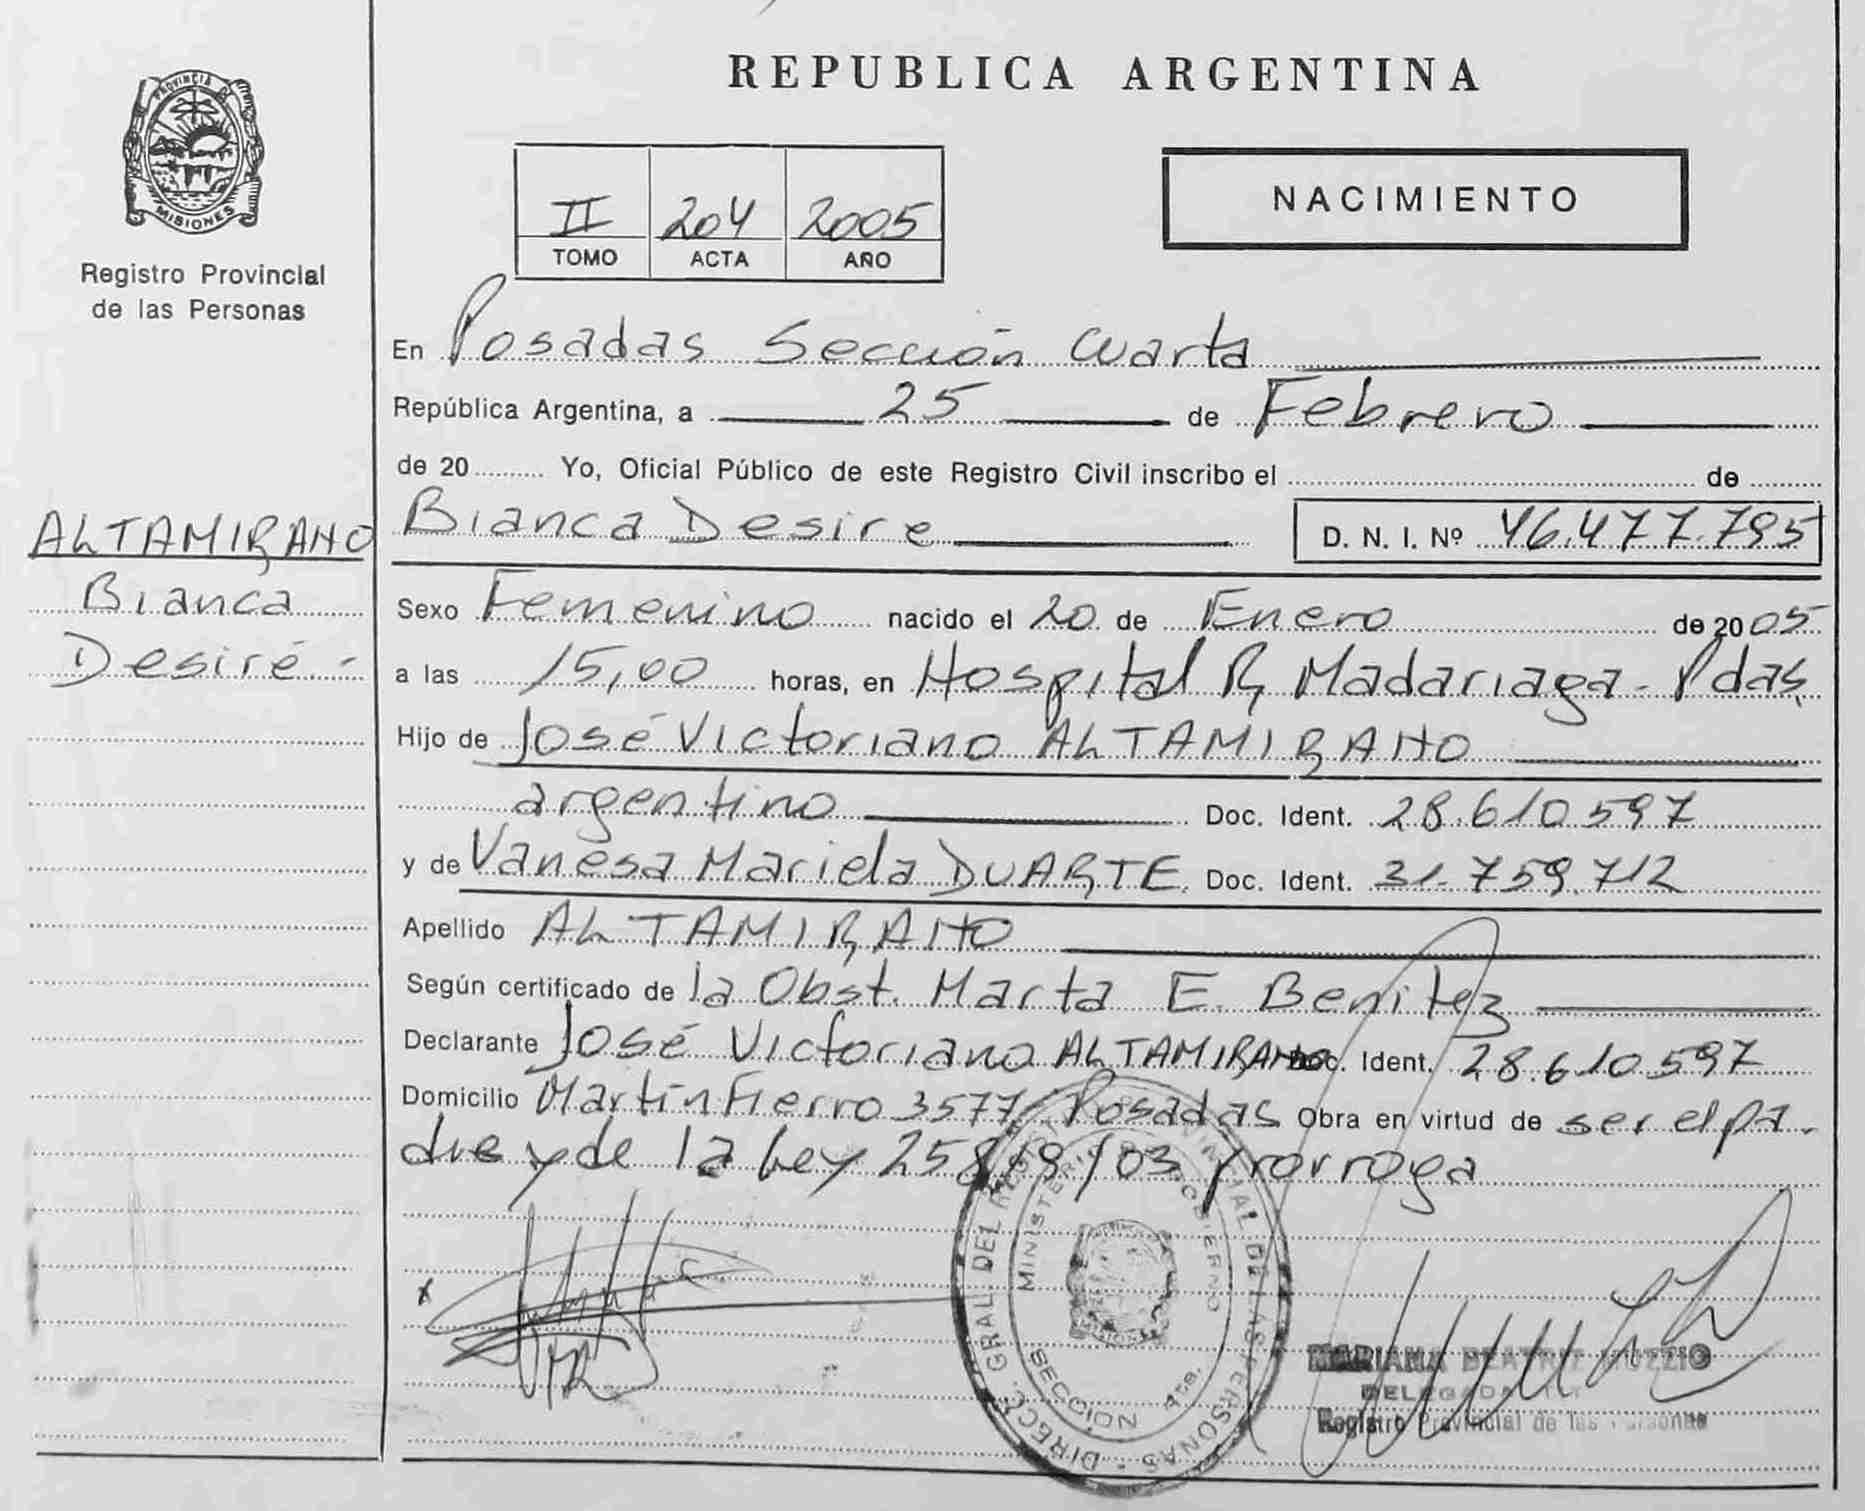 REPUBLICA ARGENTINA
PROVINCIA DE
MISIONES
Registro Provincial
de las Personas
II 204 2005
TOMO ACTA AÑO
NACIMIENTO
En Posadas Sección Cuarta
República Argentina, a 25 de Febrero
de 20 Yo, Oficial Público de este Registro Civil inscribo el de
ALTAMIRANO
Bianca
Desiré.-
Bianca Desire D. N. I. Nº 46.477.795
Sexo Femenino nacido el 20 de Enero de 2005
a las 15,00 horas, en Hospital R. Madariaga - Pdas.
Hijo de José Victoriano ALTAMIRANO
argentino Doc. Ident. 28.610.597
y de Vanesa Mariela DUARTE. Doc. Ident. 31.759.712
Apellido ALTAMIRANO
Según certificado de la Obst. Marta E. Benitez
Declarante José Victoriano ALTAMIRANO Doc. Ident. 28.610.597
Domicilio Martín Fierro 3577 Posadas Obra en virtud de ser el pa-
dre y de la Ley 25819/03 Prorroga
DIRECC. GRAL. DEL REGISTRO PROVINCIAL DE LAS PERSONAS
MINISTERIO DE GOBIERNO
SECCION 4ta.
MISIONES
MARIANA BEATRIZ MUZZIO
DELEGADA TIT
Registro Provincial de las Personas